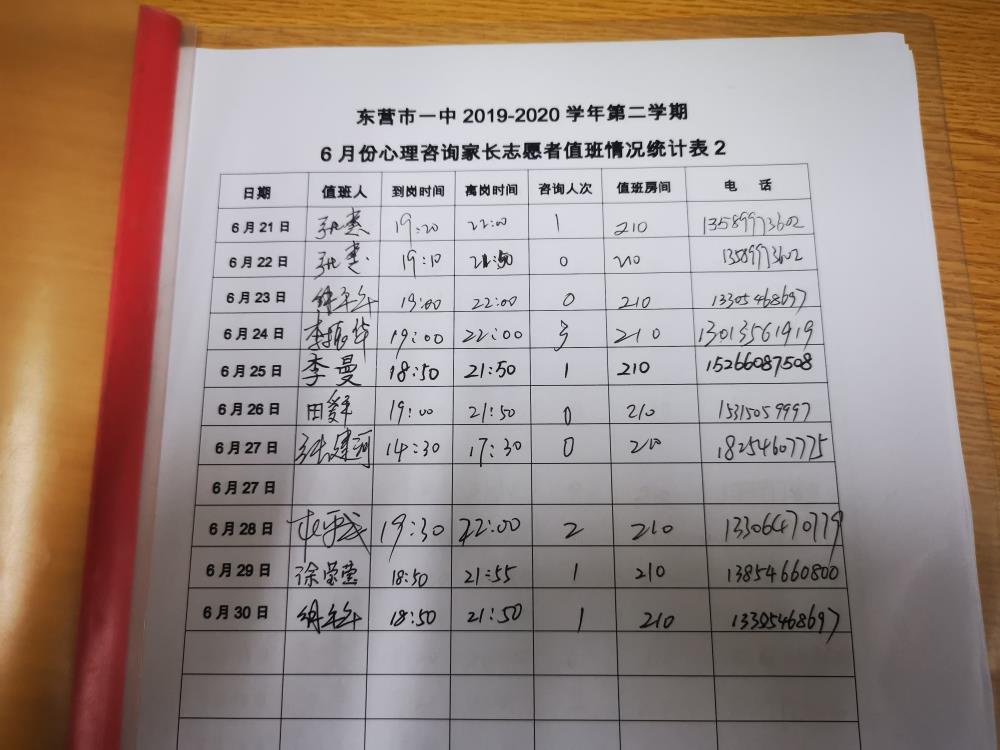 东营市一中 2019-2020 学年第二学期
6 月份心理咨询家长志愿者值班情况统计表 2
日期 值班人 到岗时间 离岗时间 咨询人次 值班房间 电 话
6 月 21 日 19:20 22:00 1 210 13589973602
6 月 22 日 19:10 21:50 0 210 13589973602
6 月 23 日 19:00 22:00 0 210 13305468697
6 月 24 日 李振华 19:00 22:00 3 210 13013561919
6 月 25 日 李曼 18:50 21:50 1 210 15266087508
6 月 26 日 田 19:00 21:50 0 210 15315059997
6 月 27 日 张建河 14:30 17:30 0 210 18254607775
6 月 27 日
6 月 28 日 19:30 22:00 2 210 13306470779
6 月 29 日 徐荣莹 18:50 21:55 1 210 13854660800
6 月 30 日 18:50 21:50 1 210 13305468697